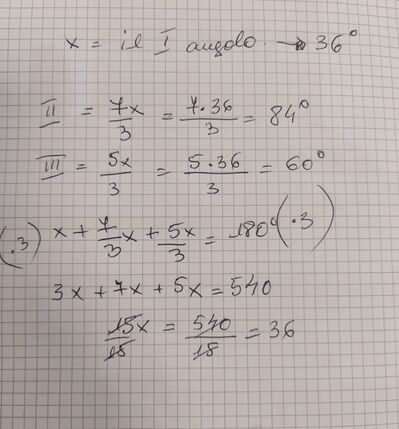 x = il I angolo → 36°
II = 7x/3 = 7·36/3 = 84°
III = 5x/3 = 5·36/3 = 60°
(·3) x + 7/3 x + 5x/3 = 180° (·3)
3x + 7x + 5x = 540
15x/15 = 540/15 = 36